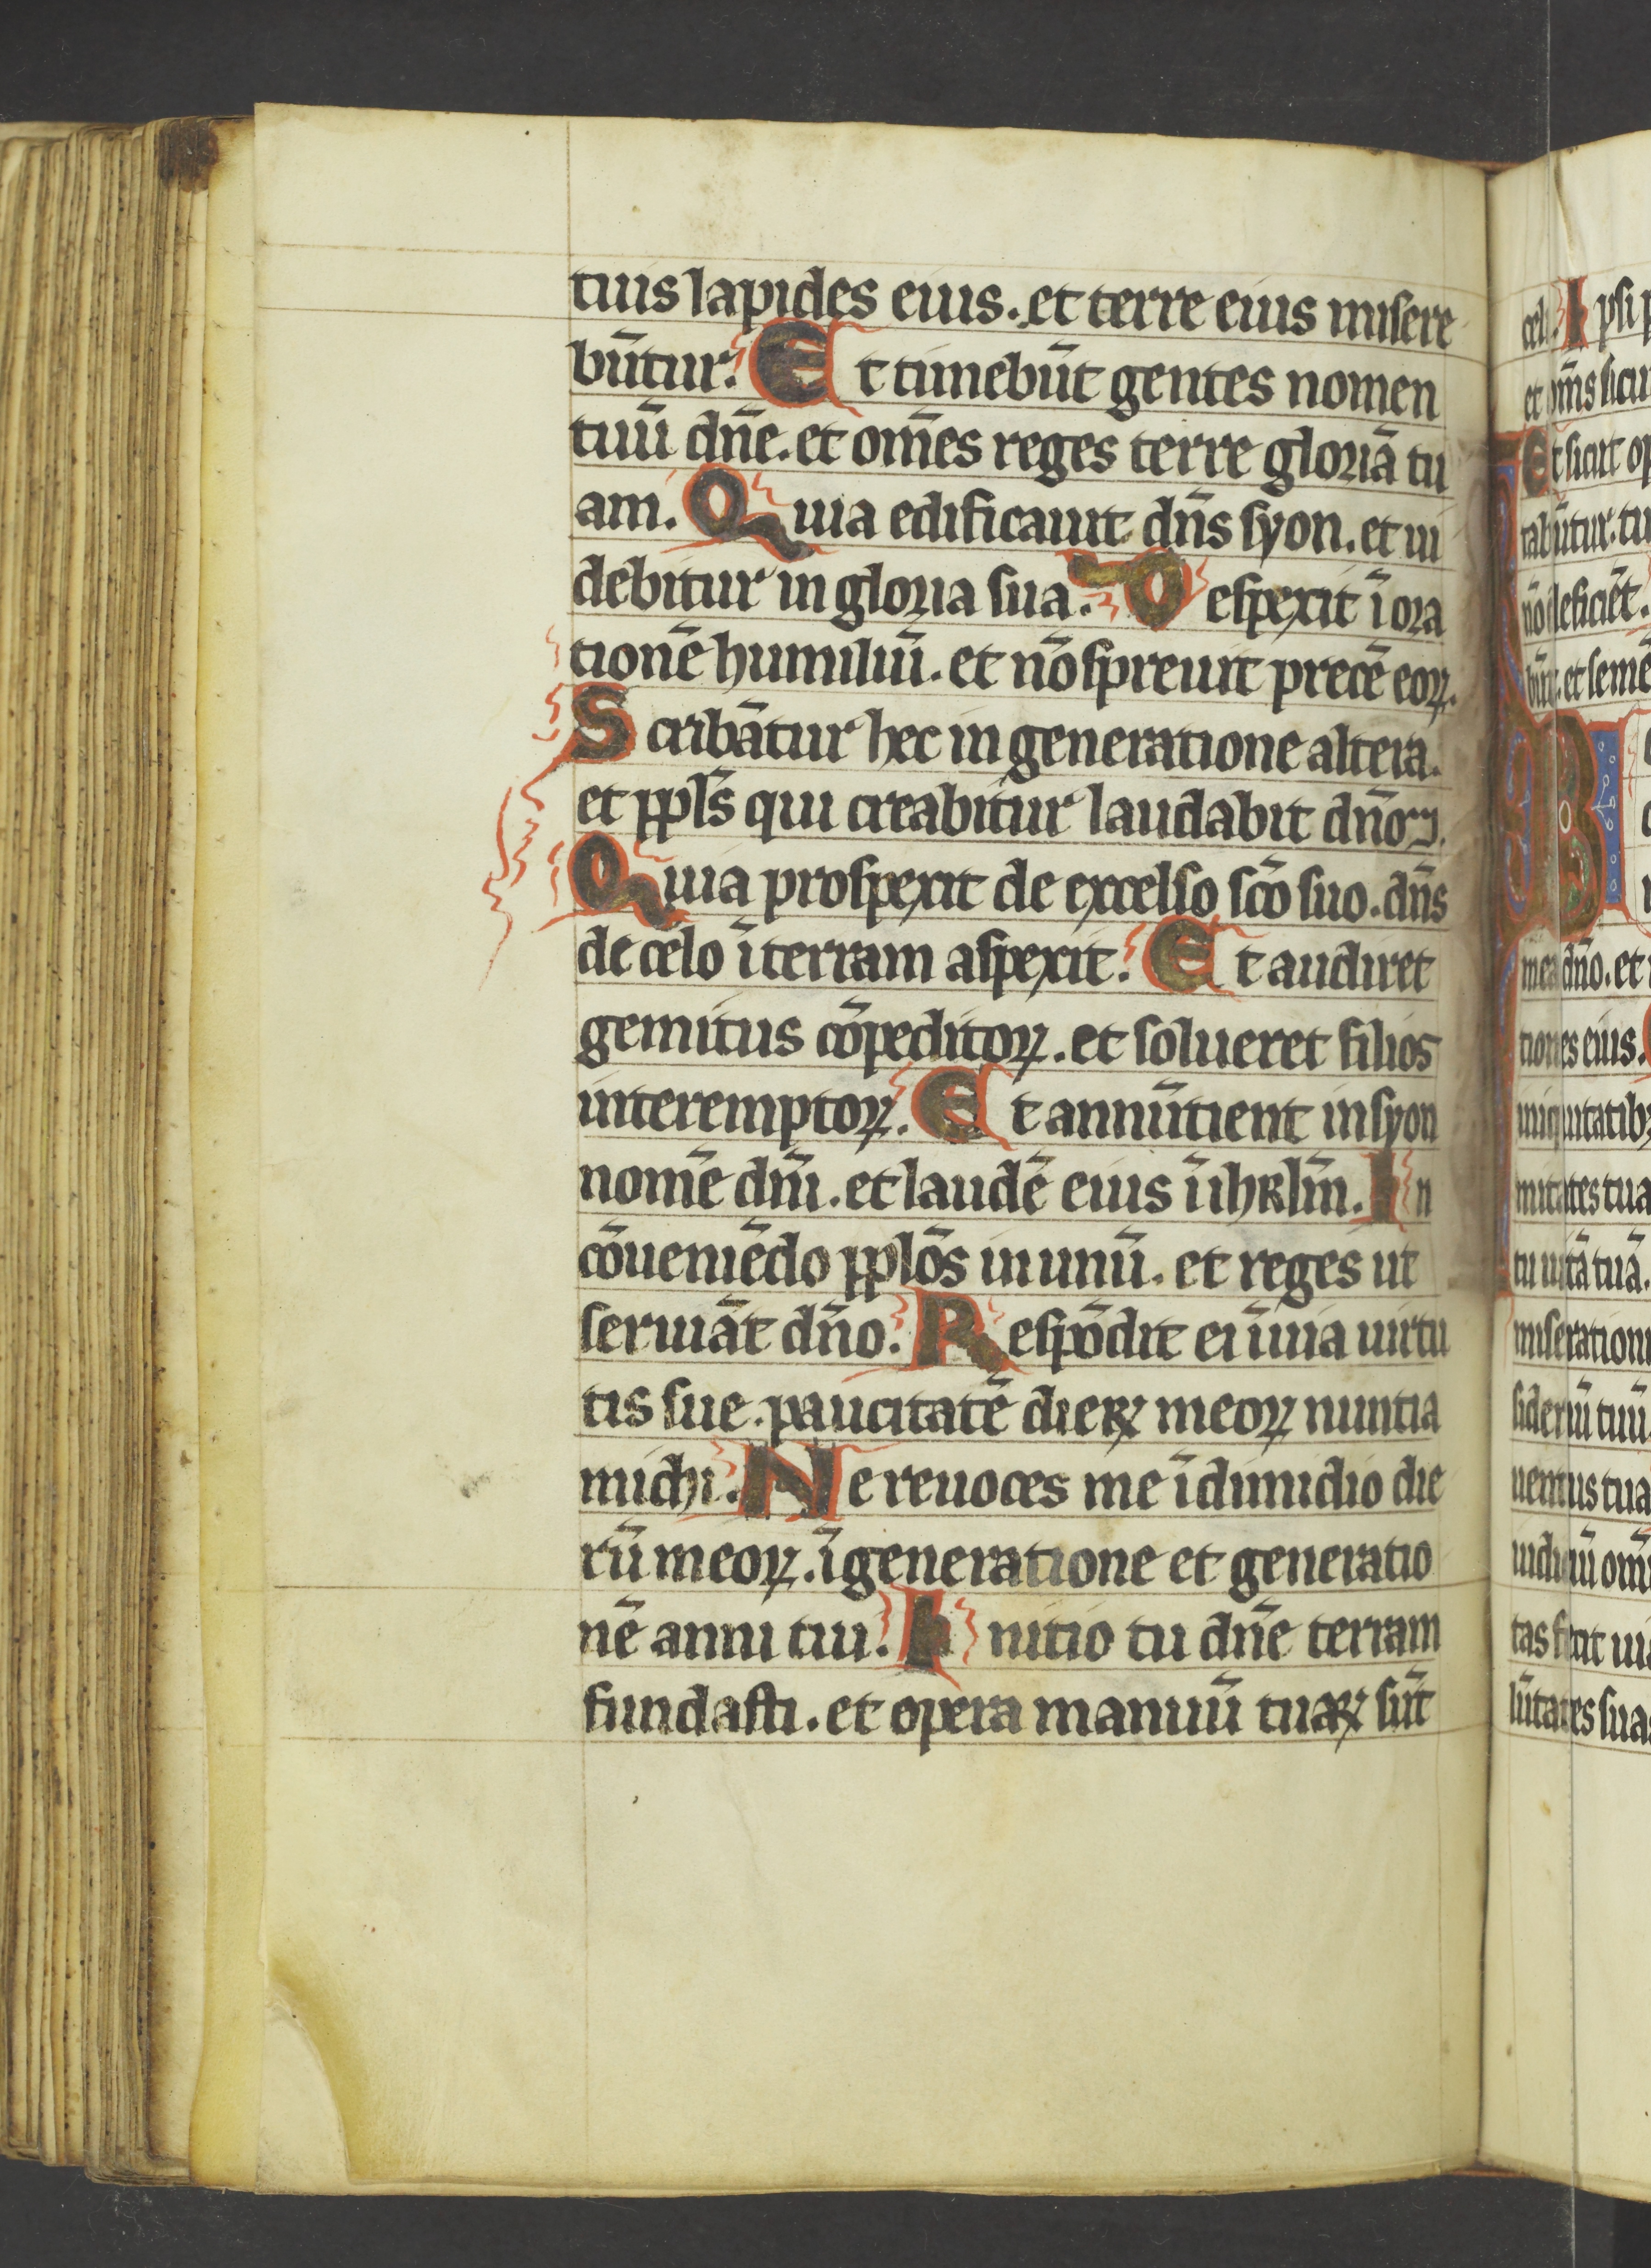 tuis lapides eius. et terre eius misere
būtur. Et timebūt gentes nomen
tuū dn̄e. et om̄es reges terre gloriā tu
am. Quia edificauit dn̄s syon. et ui
debitur in gloria sua. Respexit ī ora
tionē humiliū. et nō spreuit precē eoꝝ.
Scribātur hec in generatione altera.
et ppl̄s qui creabitur laudabit dn̄m.
Quia prospexit de excelso sc̄o suo. dn̄s
de celo ī terram aspexit. Et audiret
gemitus cōpeditoꝝ. et solueret filios
interemptoꝝ. Et annūtient in syon
nomē dn̄i. et laudē eius ī ihrl̄m. In
cōueniēdo pplōs in unū. et reges ut
seruiāt dn̄o. Respōdit ei ī uia uirtu
tis sue. paucitatē dieꝝ meoꝝ nuntia
michi. Ne reuoces me ī dimidio die
rū meoꝝ. ī generatione et generatio
nē anni tui. Initio tu dn̄e terram
fundasti. et opera manuū tuaꝝ sūt
celi. Ipsi p
et om̄s sicut
Et sicut op
tabūtur. tu
nō deficiēt.
būt. et semē
mea dn̄o. et
tiones eius.
iniquitatibꝫ
mitates tua
tu uitā tuā.
miserationi
sideriū tuū
uentus tua
iudiciū om̄i
tas fecit uia
lūtates suas